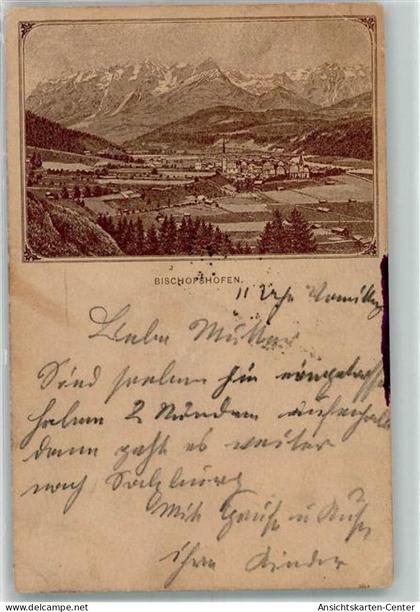 BISCHOFSHOFEN.
11 Uhr Vormittag
Liebe Mutter
Sind soeben hier eingetroffen
haben 2 Stunden Aufenthalt
dann geht es weiter
nach Salzburg
Mit Gruß u Kuß
ihre Kinder
www.ansichtskarten-center.de
Ansichtskarten-Center